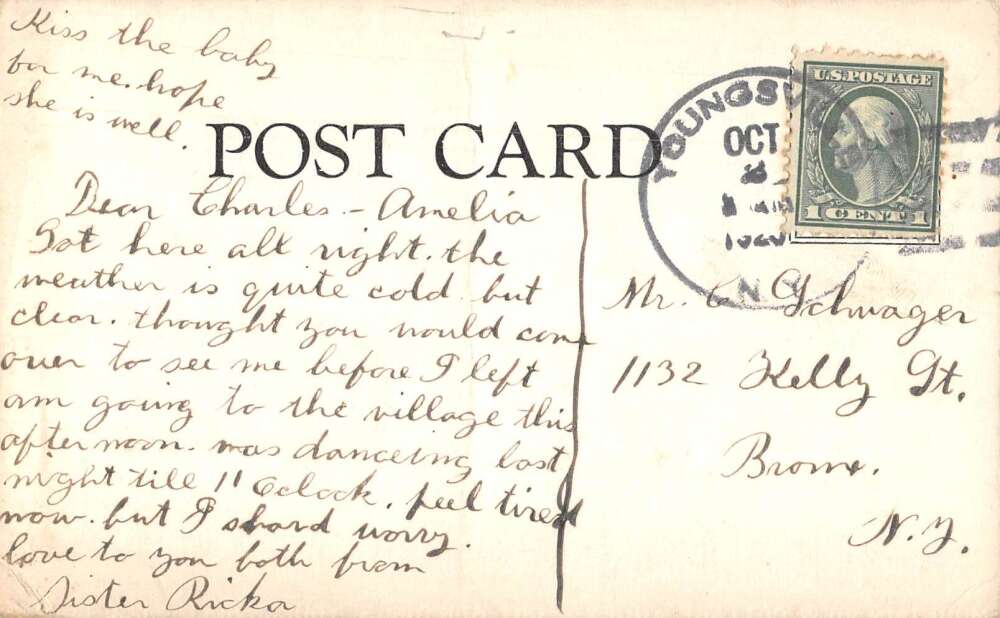 Kiss the baby
for me. hope
she is well.
POST CARD
Dear Charles - Amelia
Got here all right. the
weather is quite cold but
clear. thought you would come
over to see me before I left
am going to the village this
afternoon. was danceing last
night till 11 Oclock. feel tired
now. but I shard worry.
love to you both from
Sister Ricka
YOUNGSV
OCT
N.Y.
U.S. POSTAGE
1 CENT 1
Mr. C Schwager
1132 Kelly St.
Bronx.
N.Y.